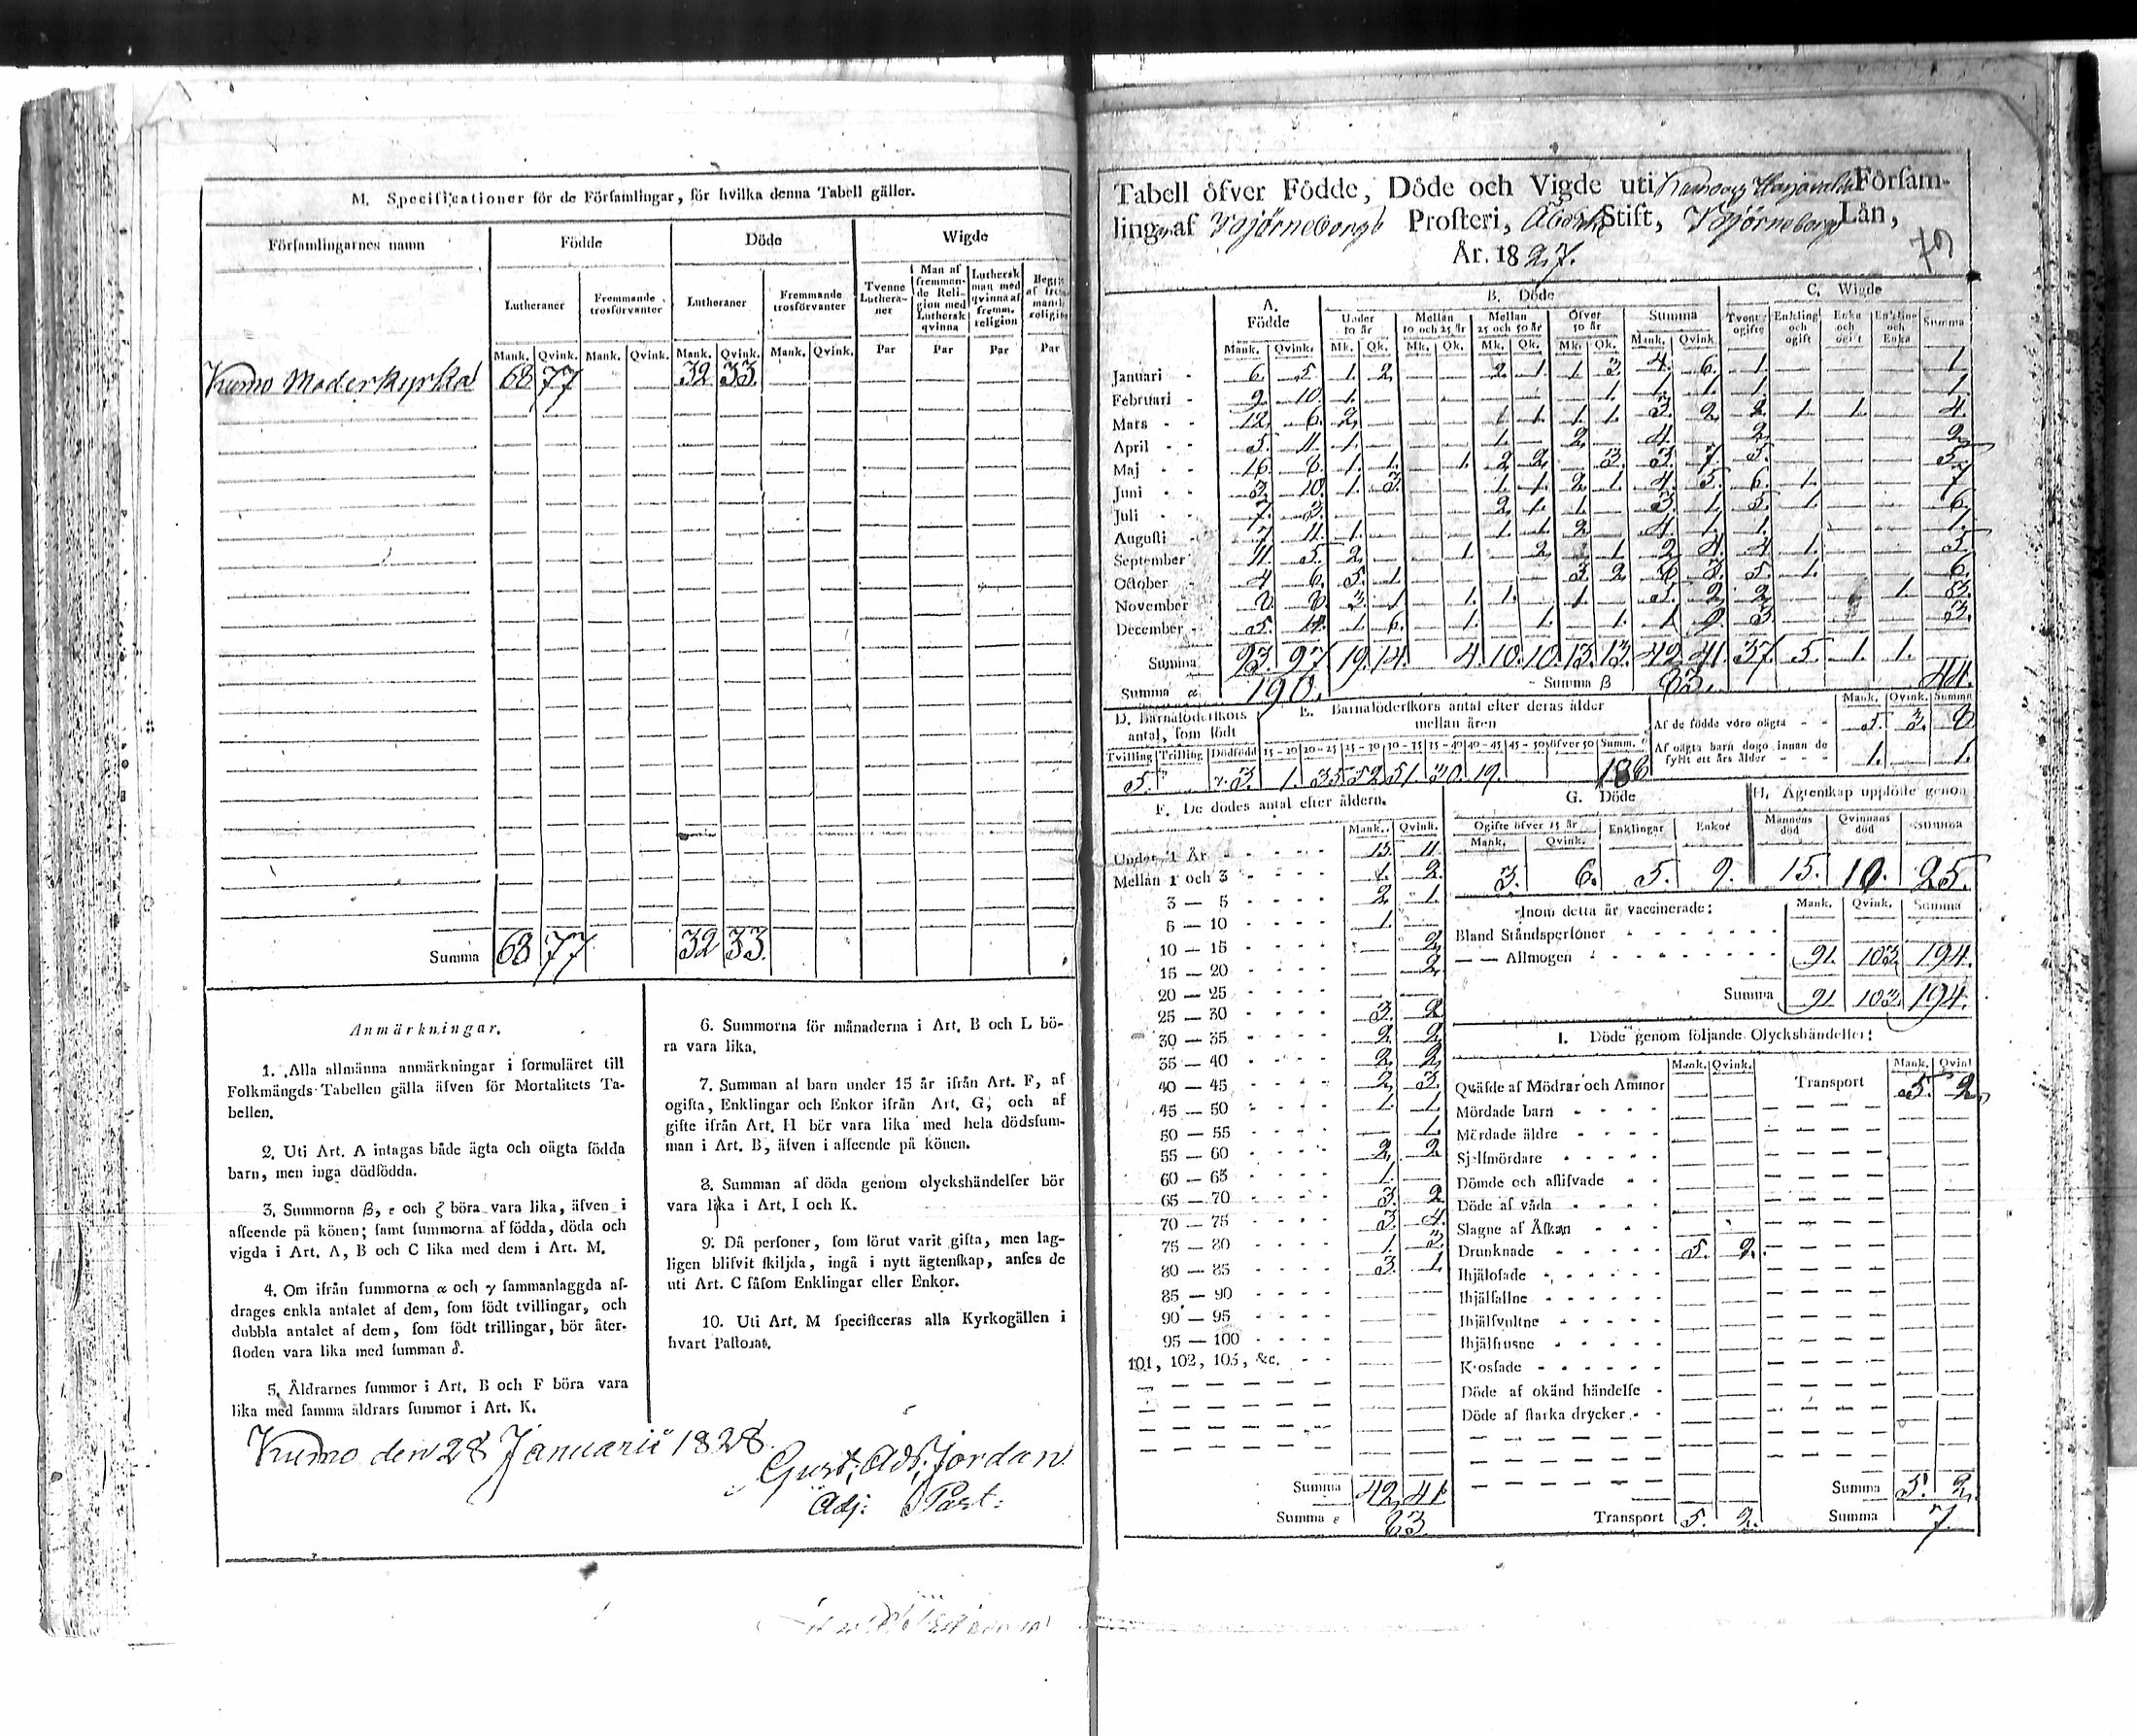 M. Specificationer för de Församlingar, för hvilka denna Tabell gäller.
Församlingarnes namn Födde Döde Wigde
Lutheraner Fremmande trosförvanter Lutheraner Fremmande trosförvanter Tvenne Lutheraner Man af fremmande Religion med Luthersk qvinna Luthersk man med qvinna af fremm. religion
Mank. Qvink. Mank. Qvink. Mank. Qvink. Mank. Qvink. Par Par Par Par
Kumo Moderkyrka 68 77 32 33
Summa 68 77 32 33.
Anmärkningar.
1. Alla allmänna anmärkningar i formuläret till
Folkmängds-Tabellen gälla äfven för Mortalitets Ta-
bellen.
2. Uti Art. A intagas både ägta och oägta födda
barn, men inga dödfödda.
3. Summorna β, ε och ζ böra vara lika, äfven i
afseende på könen; samt summorna af födda, döda och
vigda i Art. A, B och C lika med dem i Art. M.
4. Om ifrån summorna α och γ sammanlaggda af-
drages enkla antalet af dem, som födt tvillingar, och
dubbla antalet af dem, som födt trillingar, bör åter-
stoden vara lika med summan δ.
5. Åldrarnes summor i Art. B och F böra vara
lika med samma åldrars summor i Art. K.
6. Summorna för månaderna i Art. B och L bö-
ra vara lika.
7. Summan af barn under 15 år ifrån Art. F, af
ogifta, Enklingar och Enkor ifrån Art. G, och af
gifte ifrån Art. H bör vara lika med hela dödssum-
man i Art. B, äfven i afseende på könen.
8. Summan af döda genom olyckshändelser bör
vara lika i Art. I och K.
9. Då personer, som förut varit gifta, men lag-
ligen blifvit skiljda, ingå i nytt ägtenskap, anses de
uti Art. C såsom Enklingar eller Enkor.
10. Uti Art. M specificeras alla Kyrkogällen i
hvart Pastorat.
Kumo den 28 Januarii 1828.
Gust. Ad. Jordan
Adj: Past:
Tabell öfver Födde, Döde och Vigde uti Församling af Björneborgs Prosteri, Åbo Stift, Björneborgs Län,
År. 1827.
79
A. Födde B. Döde C. Wigde
Under 10 år Mellan 10 och 25 år Mellan 25 och 50 år Öfver 50 år Summa Tvenne ogifte Enkling och ogift Enka och ogift Enkling och Enka Summa
Mank. Qvink. Mk. Qk. Mk. Qk. Mk. Qk. Mk. Qk. Mank. Qvink.
Januari 6. 5. 1. 2. 2. 1. 1. 3. 4. 6. 1. 1.
Februari 9. 10. 1. 1. 1. 1. 1. 1.
Mars 12. 6. 2. 1. 1. 1. 1. 3. 2. 2. 1. 1. 4.
April 5. 11. 1. 1. 2. 4. 2. 2.
Maj 16. 8. 1. 1. 1. 2. 2. 3. 3. 7. 5. 5.
Juni 3. 10. 1. 3. 1. 1. 2. 1. 4. 5. 6. 1. 7.
Juli 7. 3. 2. 1. 1. 3. 1. 5. 1. 6.
Augusti 7. 11. 1. 1. 1. 2. 4. 1. 1. 1.
September 11. 5. 2. 1. 2. 1. 2. 4. 4. 1. 5.
October 4. 6. 5. 1. 3. 2. 8. 3. 5. 1. 6.
November 8. 8. 3. 1. 1. 1. 1. 5. 2. 2. 1. 3.
December 5. 14. 1. 6. 1. 1. 1. 1. 9. 3. 3.
Summa 93. 97. 19. 14. 4. 10. 10. 13. 13. 42. 41. 37. 5. 1. 1. 44.
Summa α 190. Summa β 83.
D. Barnaföderskors antal, som födt
Tvilling Trilling Dödfödd
5. γ. 3.
E. Barnaföderskors antal efter deras ålder
mellan åren
15-20 20-25 25-30 30-35 35-40 40-45 45-50 öfver 50 Summ. δ
1. 35. 52. 51. 30. 19. 188
Mank. Qvink. Summa
Af de födde voro oägta 5. 3. 8
Af oägta barn dogo innan de
fyllt ett års ålder 1. 1.
F. De dödes antal efter åldern.
Mank. Qvink.
Under 1 År 15. 11
Mellan 1 och 3 1. 2.
3 — 5 2. 1.
5 — 10 1.
10 — 15 2.
15 — 20 2.
20 — 25
25 — 30 3. 2
30 — 35 2. 2.
35 — 40 2. 2.
40 — 45 2. 3.
45 — 50 1. 1
50 — 55 1.
55 — 60 2. 2
60 — 65 1.
65 — 70 3. 2
70 — 75 3. 4.
75 — 80 1. 3.
80 — 85 3. 1.
85 — 90
90 — 95
95 — 100
101, 102, 103, &c.
Summa 42. 41
Summa ε 83
G. Döde
Ogifte öfver 15 år Enklingar Enkor
Mank. Qvink.
3. 6. 5. 9.
H. Ägtenskap upplöste genom
Mannens död Qvinnans död Summa
15. 10. 25.
Inom detta år vaccinerade: Mank. Qvink. Summa
Bland Ståndspersoner
— — Allmogen 91. 103. 194.
Summa 91 103 194.
I. Döde genom följande Olyckshändelser:
Mank. Qvink. Mank. Qvink
Qväfde af Mödrar och Ammor Transport 5. 2.
Mördade barn
Mördade äldre
Sjelfmördare
Dömde och aflifvade
Döde af våda
Slagne af Åskan
Drunknade 5. 2.
Ihjälosade
Ihjälfallne
Ihjälsvultne
Ihjälfrusne
Krossade
Döde af okänd händelse
Döde af starka drycker
Summa 5. 2.
Transport 5. 2. Summa 7.